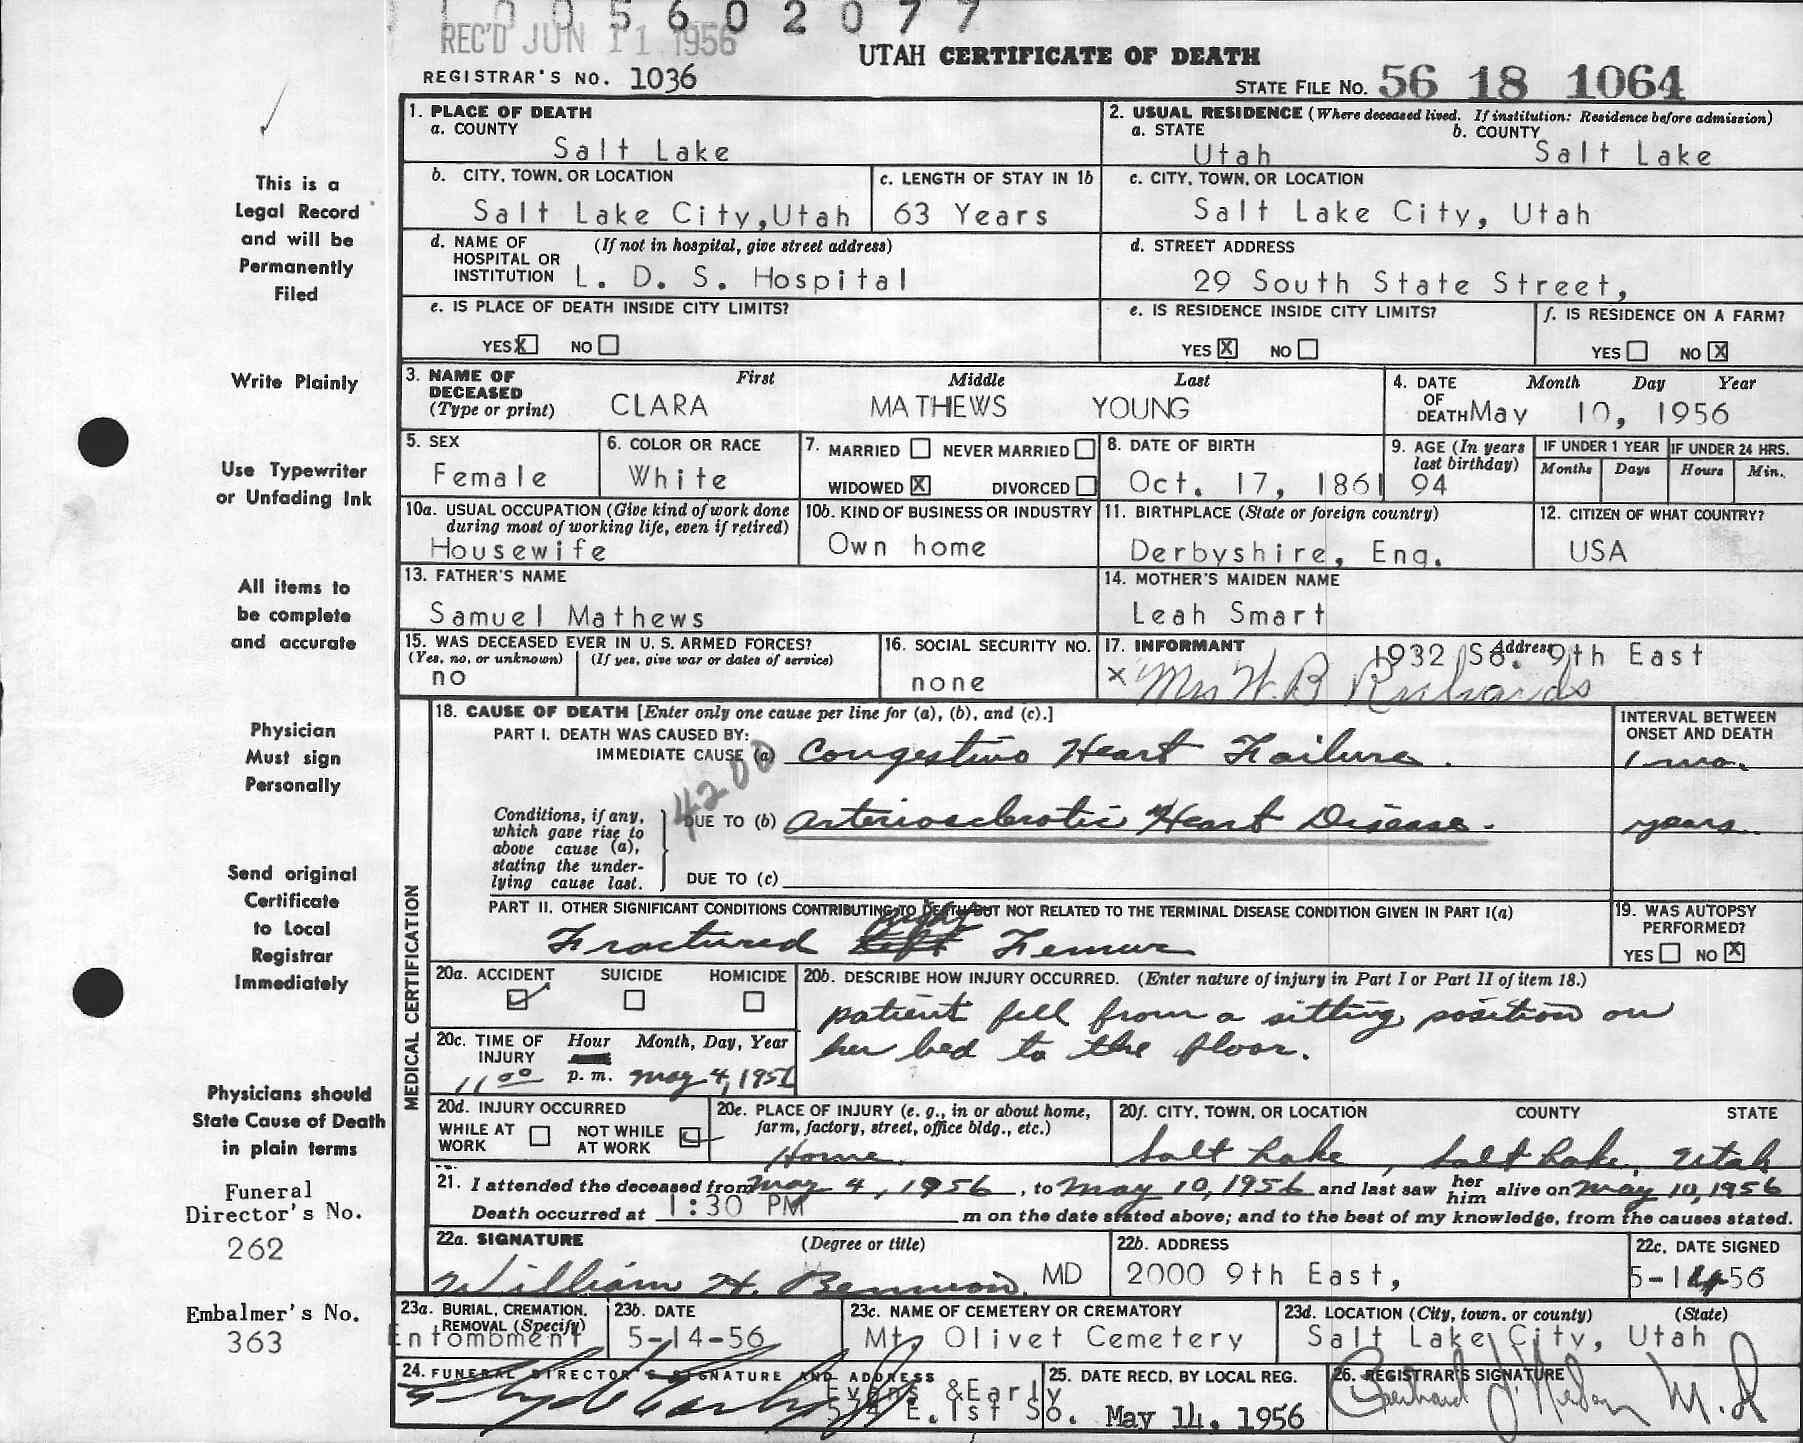 1 0 0 5 6 0 2 0 7 7
REC'D JUN 11 1956
UTAH CERTIFICATE OF DEATH
REGISTRAR'S NO. 1036
STATE FILE NO. 56 18 1064
This is a
Legal Record
and will be
Permanently
Filed
Write Plainly
Use Typewriter
or Unfading Ink
All items to
be complete
and accurate
Physician
Must sign
Personally
Send original
Certificate
to Local
Registrar
Immediately
Physicians should
State Cause of Death
in plain terms
Funeral
Director's No.
262
Embalmer's No.
363
1. PLACE OF DEATH
a. COUNTY
Salt Lake
2. USUAL RESIDENCE (Where deceased lived. If institution: Residence before admission)
a. STATE b. COUNTY
Utah Salt Lake
b. CITY, TOWN, OR LOCATION
Salt Lake City, Utah
c. LENGTH OF STAY IN 1b
63 Years
c. CITY, TOWN, OR LOCATION
Salt Lake City, Utah
d. NAME OF (If not in hospital, give street address)
HOSPITAL OR
INSTITUTION L. D. S. Hospital
d. STREET ADDRESS
29 South State Street,
e. IS PLACE OF DEATH INSIDE CITY LIMITS?
YES X NO
e. IS RESIDENCE INSIDE CITY LIMITS?
YES X NO
f. IS RESIDENCE ON A FARM?
YES NO X
3. NAME OF First Middle Last
DECEASED
(Type or print) CLARA MATHEWS YOUNG
4. DATE Month Day Year
OF
DEATH May 10, 1956
5. SEX
Female
6. COLOR OR RACE
White
7. MARRIED NEVER MARRIED
WIDOWED X DIVORCED
8. DATE OF BIRTH
Oct. 17, 1861
9. AGE (In years
last birthday)
94
IF UNDER 1 YEAR IF UNDER 24 HRS.
Months Days Hours Min.
10a. USUAL OCCUPATION (Give kind of work done
during most of working life, even if retired)
Housewife
10b. KIND OF BUSINESS OR INDUSTRY
Own home
11. BIRTHPLACE (State or foreign country)
Derbyshire, Eng.
12. CITIZEN OF WHAT COUNTRY?
USA
13. FATHER'S NAME
Samuel Mathews
14. MOTHER'S MAIDEN NAME
Leah Smart
15. WAS DECEASED EVER IN U. S. ARMED FORCES?
(Yes, no, or unknown) (If yes, give war or dates of service)
no
16. SOCIAL SECURITY NO.
none
17. INFORMANT Address
1932 So. 9th East
x Mrs W. B Richards
MEDICAL CERTIFICATION
18. CAUSE OF DEATH [Enter only one cause per line for (a), (b), and (c).]
INTERVAL BETWEEN
ONSET AND DEATH
PART I. DEATH WAS CAUSED BY:
IMMEDIATE CAUSE (a) Congestive Heart Failure. 1 mo.
4200
Conditions, if any,
which gave rise to
above cause (a),
stating the under-
lying cause last.
DUE TO (b) Arteriosclerotic Heart Disease. years
DUE TO (c)
PART II. OTHER SIGNIFICANT CONDITIONS CONTRIBUTING TO DEATH BUT NOT RELATED TO THE TERMINAL DISEASE CONDITION GIVEN IN PART I(a)
right
Fractured left Femur
19. WAS AUTOPSY
PERFORMED?
YES NO X
20a. ACCIDENT SUICIDE HOMICIDE
20b. DESCRIBE HOW INJURY OCCURRED. (Enter nature of injury in Part I or Part II of item 18.)
patient fell from a sitting position on
her bed to the floor.
20c. TIME OF Hour Month, Day, Year
INJURY
11:00 p. m. May 4, 1956
20d. INJURY OCCURRED
WHILE AT WORK NOT WHILE AT WORK
20e. PLACE OF INJURY (e. g., in or about home,
farm, factory, street, office bldg., etc.)
Home
20f. CITY, TOWN, OR LOCATION COUNTY STATE
Salt Lake, Salt Lake, Utah
21. I attended the deceased from May 4, 1956, to May 10, 1956 and last saw her him alive on May 10, 1956
Death occurred at 1:30 PM m on the date stated above; and to the best of my knowledge, from the causes stated.
22a. SIGNATURE (Degree or title)
William H. Bennion MD
22b. ADDRESS
2000 9th East,
22c. DATE SIGNED
5-14-56
23a. BURIAL, CREMATION,
REMOVAL (Specify)
Entombment
23b. DATE
5-14-56
23c. NAME OF CEMETERY OR CREMATORY
Mt. Olivet Cemetery
23d. LOCATION (City, town, or county) (State)
Salt Lake City, Utah
24. FUNERAL DIRECTOR'S SIGNATURE AND ADDRESS
Evans & Early
574 E. 1st So.
25. DATE RECD. BY LOCAL REG.
May 14, 1956
26. REGISTRAR'S SIGNATURE
M.D.